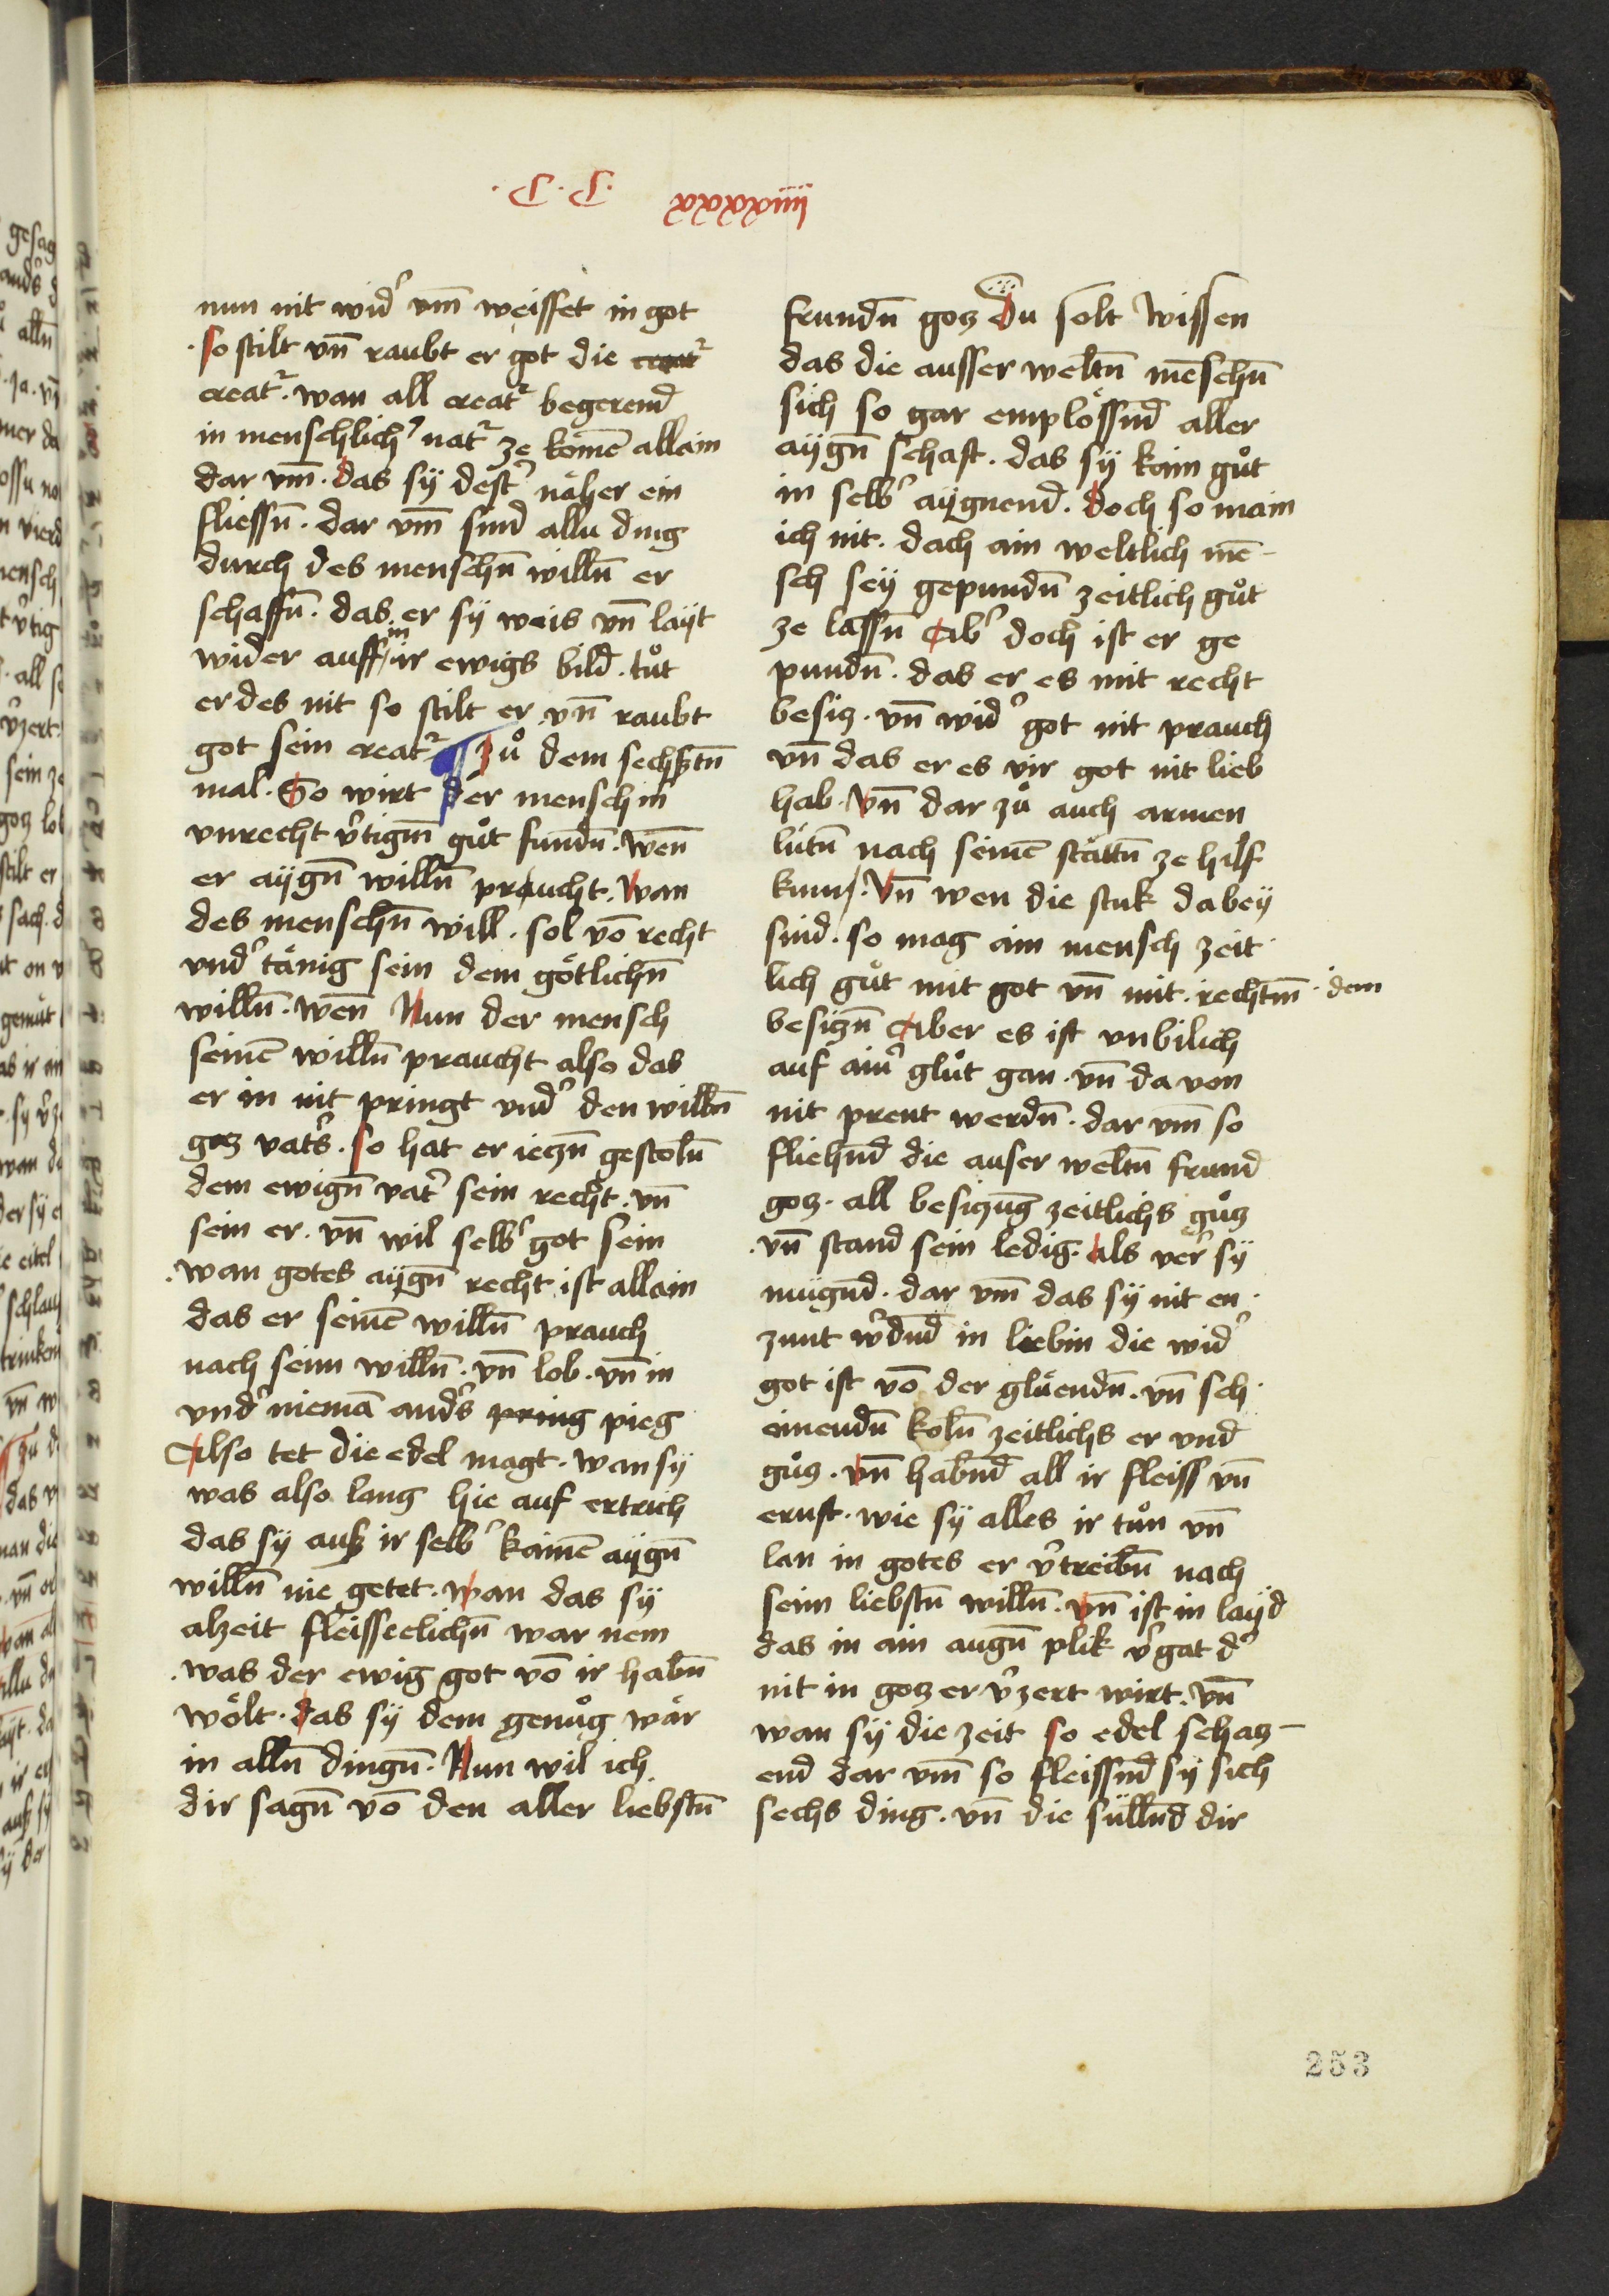 ·C·C· xxxxxiiij
nun nit wid' vm̄ weisset in got
·so stilt vn̄ raubt er got die
creat². wan all creat² begerend
in menschlich' nat² ze kömē allain
dar vm̄. das sÿ dest' näher ein
fliessn̄. dar vm̄ sind allu ding
durch des menschn̄ willn̄ er
schaffn̄. das er sÿ weis vn̄ laÿt
wider auff in ir ewigs bild. tuͦt
er des nit so stilt er vn̄ raubt
got sein creat² Zuͦ dem sechßtn̄
mal. So wirt der mensch in
vnrecht v'tigm̄ guͦt fundn̄. wen̄
er aÿgn̄ willn̄ praucht. wan
des menschn̄ will. sol vō recht
vnd' tänig sein dem götlichn̄
willn̄. wen̄ Nun der mensch
seinē willn̄ praucht also das
er in nit pringt vnd' den willn̄
gotz vat's. so hat er ieczn̄ gestoln̄
dem ewign̄ vat' sein recht. vn̄
sein er. vn̄ wil selb' got sein
·wan gotes aÿgn̄ recht ist allain
das er seinē willn̄ prauch
nach seinn willn̄. vn̄ lob. vn̄ in
vnd' niemā and's pring pieg
Also tet die edel magt. wan sÿ
was also lang hie auf ertrich
das sÿ auß ir selb' kainē aÿgn̄
willn̄ nie getet. wan das sÿ
alzeit fleisseclichn̄ war nem
·was der ewig got vō ir habn̄
wölt. das sÿ dem genuͦg wär
in alln̄ dingn̄. Nun wil ich
dir sagn̄ vō den aller liebstn̄
frundn̄ gotz Du solt wissen
das die ausser weltn̄ mēschn̄
sich so gar emplössnd aller
aÿgn̄ schaft. das sÿ kain guͦt
in selb' aÿgnend. doch so main
ich nit. dach ain weltlich mē-
sch seÿ gepundn̄ zeitlich guͦt
ze lassn̄ Ab' doch ist er ge
pundn̄. das er es mit recht
besitz. vn̄ wid' got nit prauch
vn̄ das er es vir got nit lieb
hab. vn̄ dar zuͦ auch armen
lütn̄ nach seinē stättn̄ ze hilf
kum. Vn̄ wen die stuk dabeÿ
sind. so mag ain mensch zeit·
lich guͦt mit got vn̄ mit. rechtm̄ ·dem
besiczn̄ Aber es ist vnbilich
auf ain' gluͦt gan. vn̄ da von
nit prent werdn̄. dar vm̄ so
fliehnd die auser weltn̄ frund
gotz. all besiczūg zeitlichs guͦtz
·vn̄ stand sein ledig. als ver' sÿ
mügnd. dar vm̄ das sÿ nit en·
zunt w'dnd in liebin die wid'
got ist vō der glüendn̄. vn̄ sch·
einendn̄ koln̄ zeitlichs er vnd
guͦtz. vn̄ habnd all ir fleiss vn̄
ernst. wie sÿ alles ir tuͦn vn̄
lan in gotes er v'treibn̄ nach
seinn liebstn̄ willn̄. vn̄ ist in laÿd
das in ain augn̄ plik v'gat d'
nit in gotz er v'zert wirt. vn̄
wan sÿ die zeit so edel schatz-
end dar vm̄ so fleissnd sÿ sich
sechs ding. vn̄ die süllnd dir
253